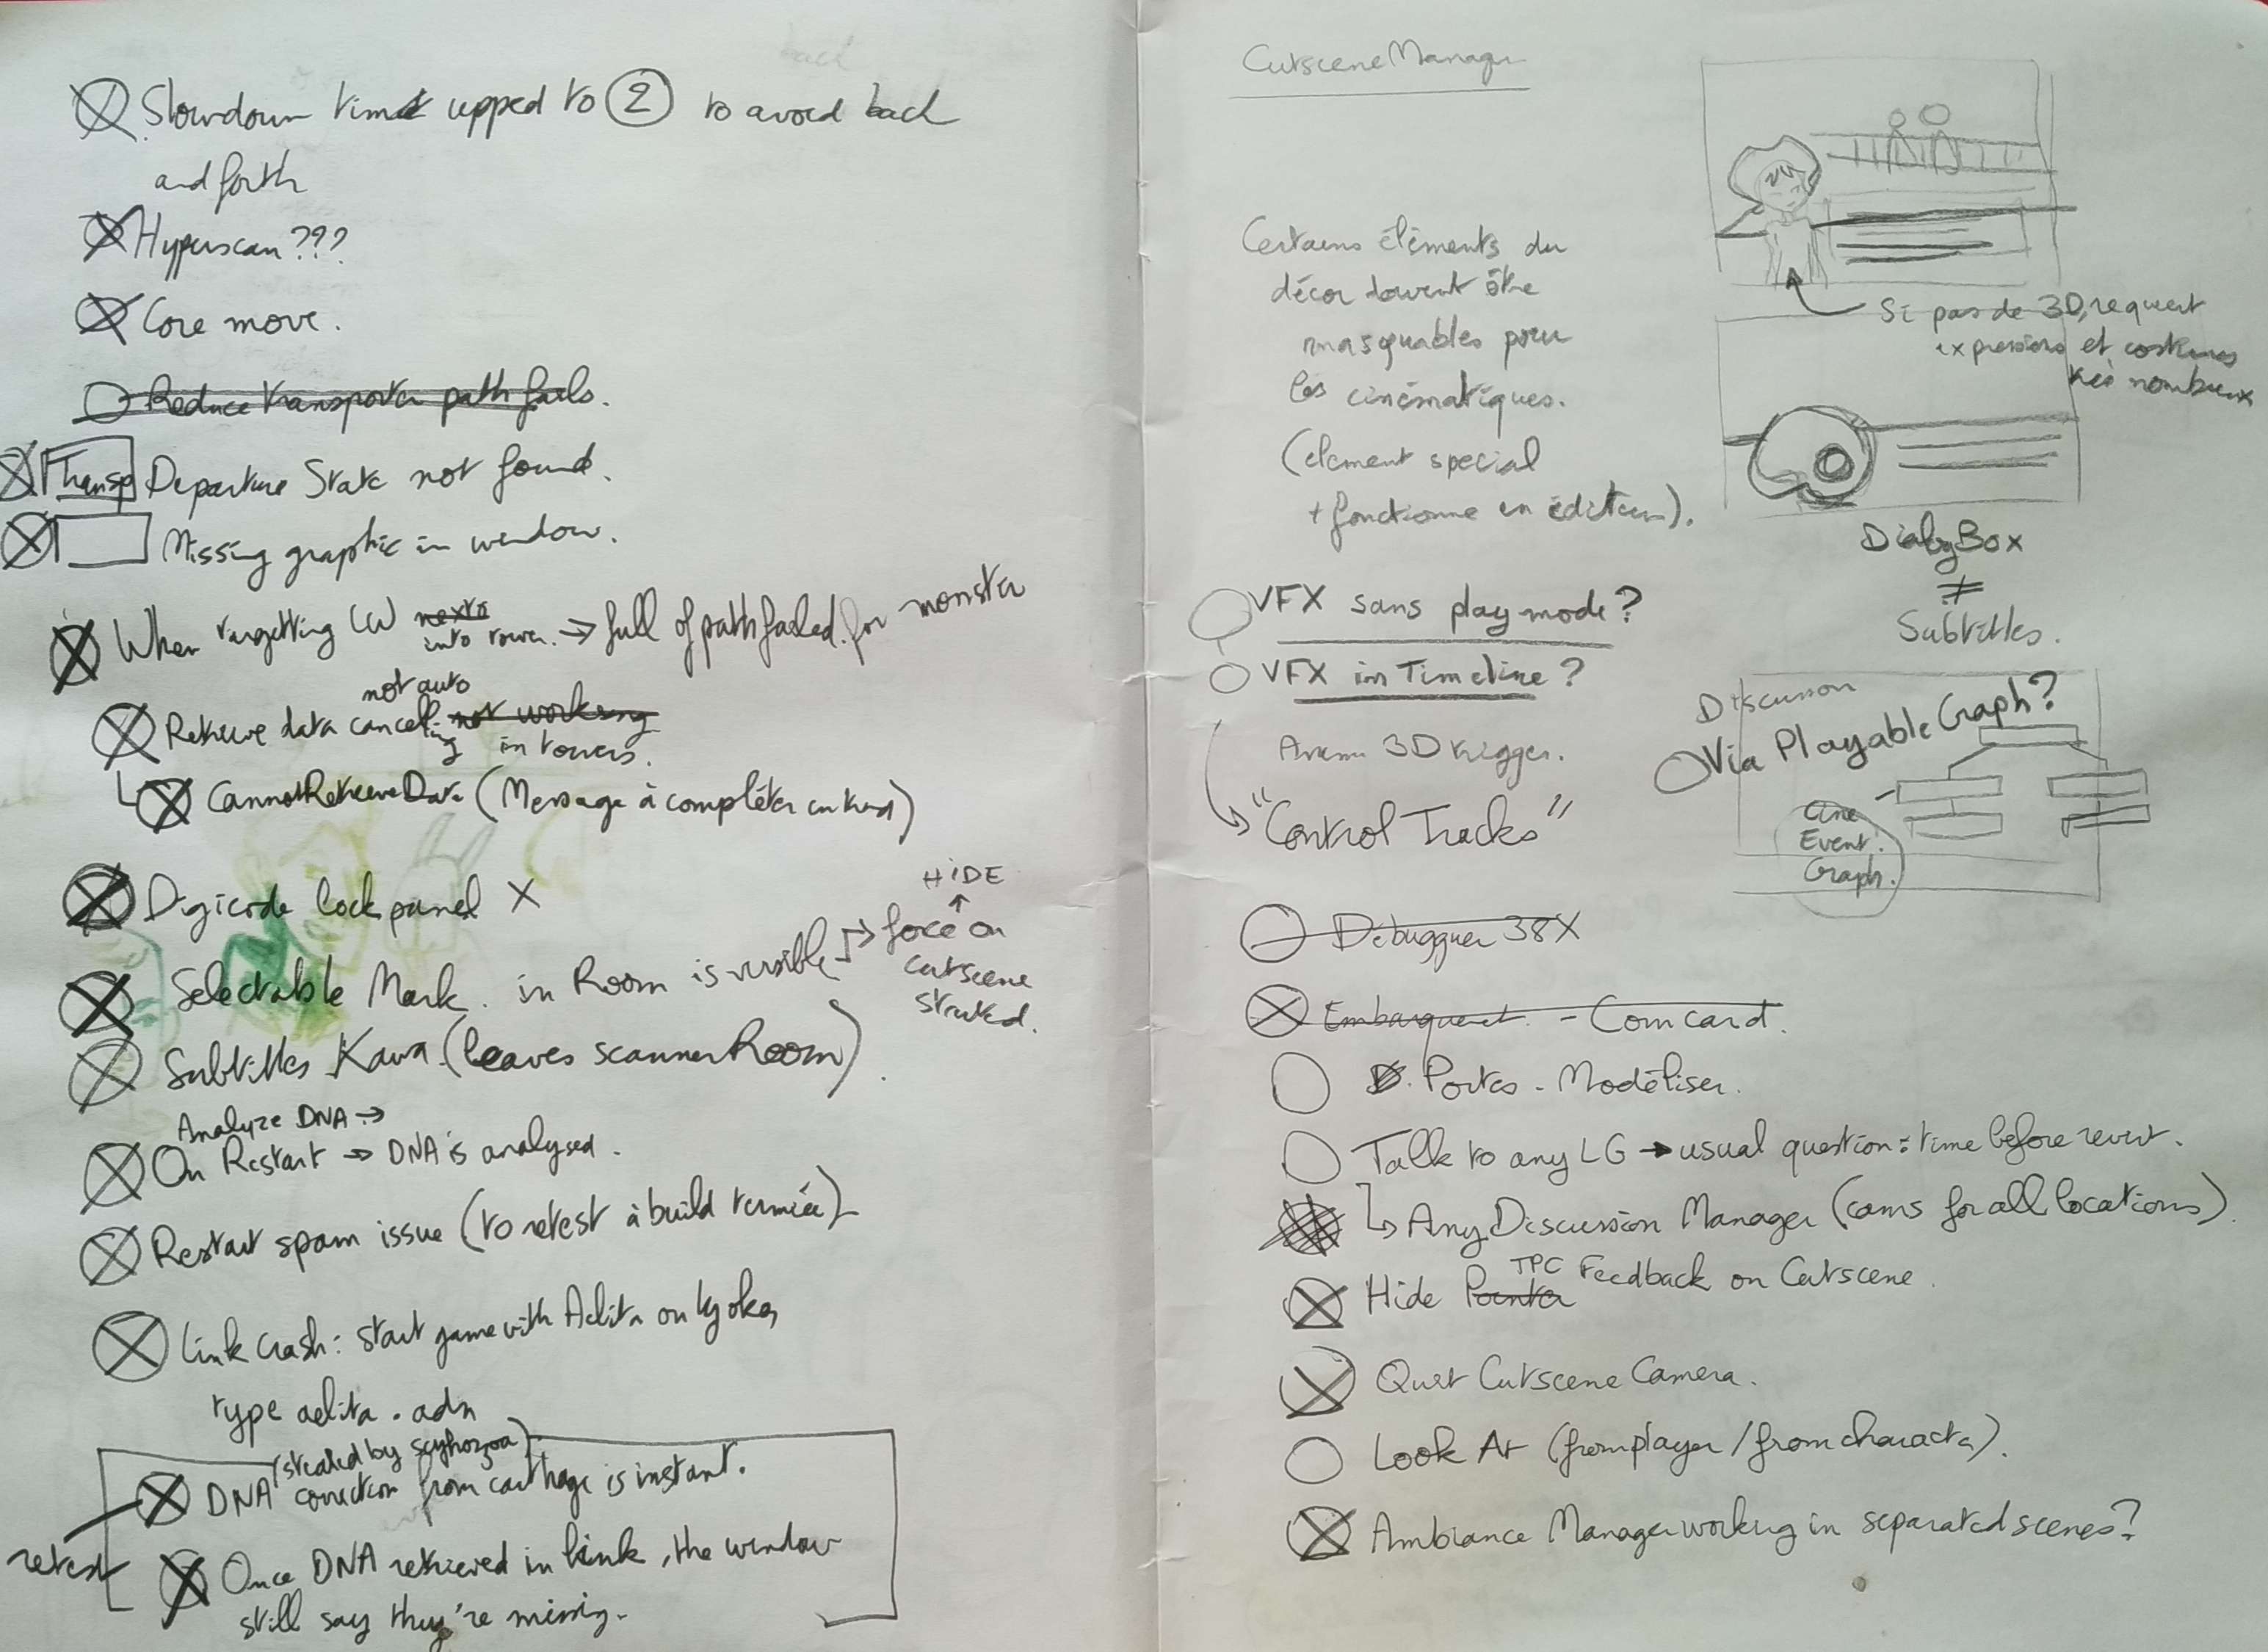 Slowdown time upped to 2 to avoid back
and forth
Hyperscan???
Core move.
Reduce transporter path fails.
Transp Departure State not found.
Missing graphic in window.
When targetting (W) next to
into tower. → full of path failed. for monster
not auto
Retrieve data cancelling not working
in towers.
CannotRetrieveData (Message à compléter en kiwi)
Digicode lock panel X
HIDE
Selectable Mark. in Room is visible → force on
cutscene
started.
Subtitles Kawa (leaves scannerRoom).
Analyze DNA →
On Restart → DNA is analysed.
Restart spam issue (to retest à build terminée)
Link crash: start game with Aelita only ok,
type aelita.adn
(stealed by scyhozoa)
DNA correction from carthage is instant.
retest
Once DNA retrieved in link, the window
still say they're missing.
CutsceneManager
Certains éléments du
décor doivent être
masquables pour
les cinématiques.
(element special
+ fonctionne en éditeur).
Si pas de 3D, requert
expressions et costumes
très nombreux
DialogBox
≠
Subtitles.
VFX sans play mode?
VFX in Timeline?
3D trigger.
"Control Tracks"
Discussion
Via PlayableGraph?
Cine
Event.
Graph.
Débugguer 38X
- Comcard.
Portes - Modéliser.
Talk to any LG → usual question: time before revert.
↳ AnyDiscussion Manager (cams for all locations).
TPC
Hide Pointer Feedback on Cutscene.
Quit Cutscene Camera.
Look At (from player / from character).
Ambiance Manager working in separated scenes?